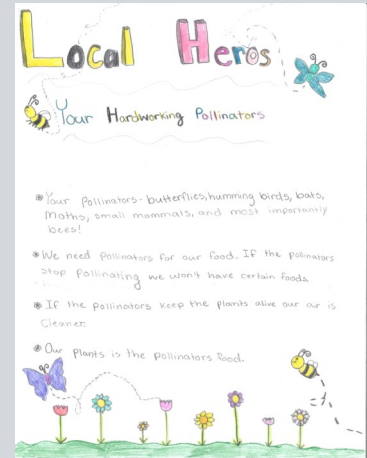 Local Heros
Your Hardworking Pollinators
Your Pollinators- butterflies, humming birds, bats,
Moths, small mammals, and most importantly
bees!
We need Pollinators for our food. If the pollinators
stop Pollinating we won't have certain foods.
If the pollinators keep the plants alive our air is
Cleaner.
Our plants is the pollinators food.